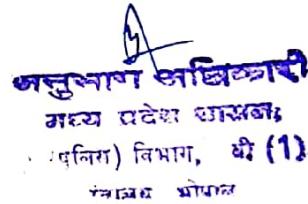 अनुभाग अधिकारी
मध्य प्रदेश शासन,
(पुलिस) विभाग, बी (1)
मंत्रालय भोपाल